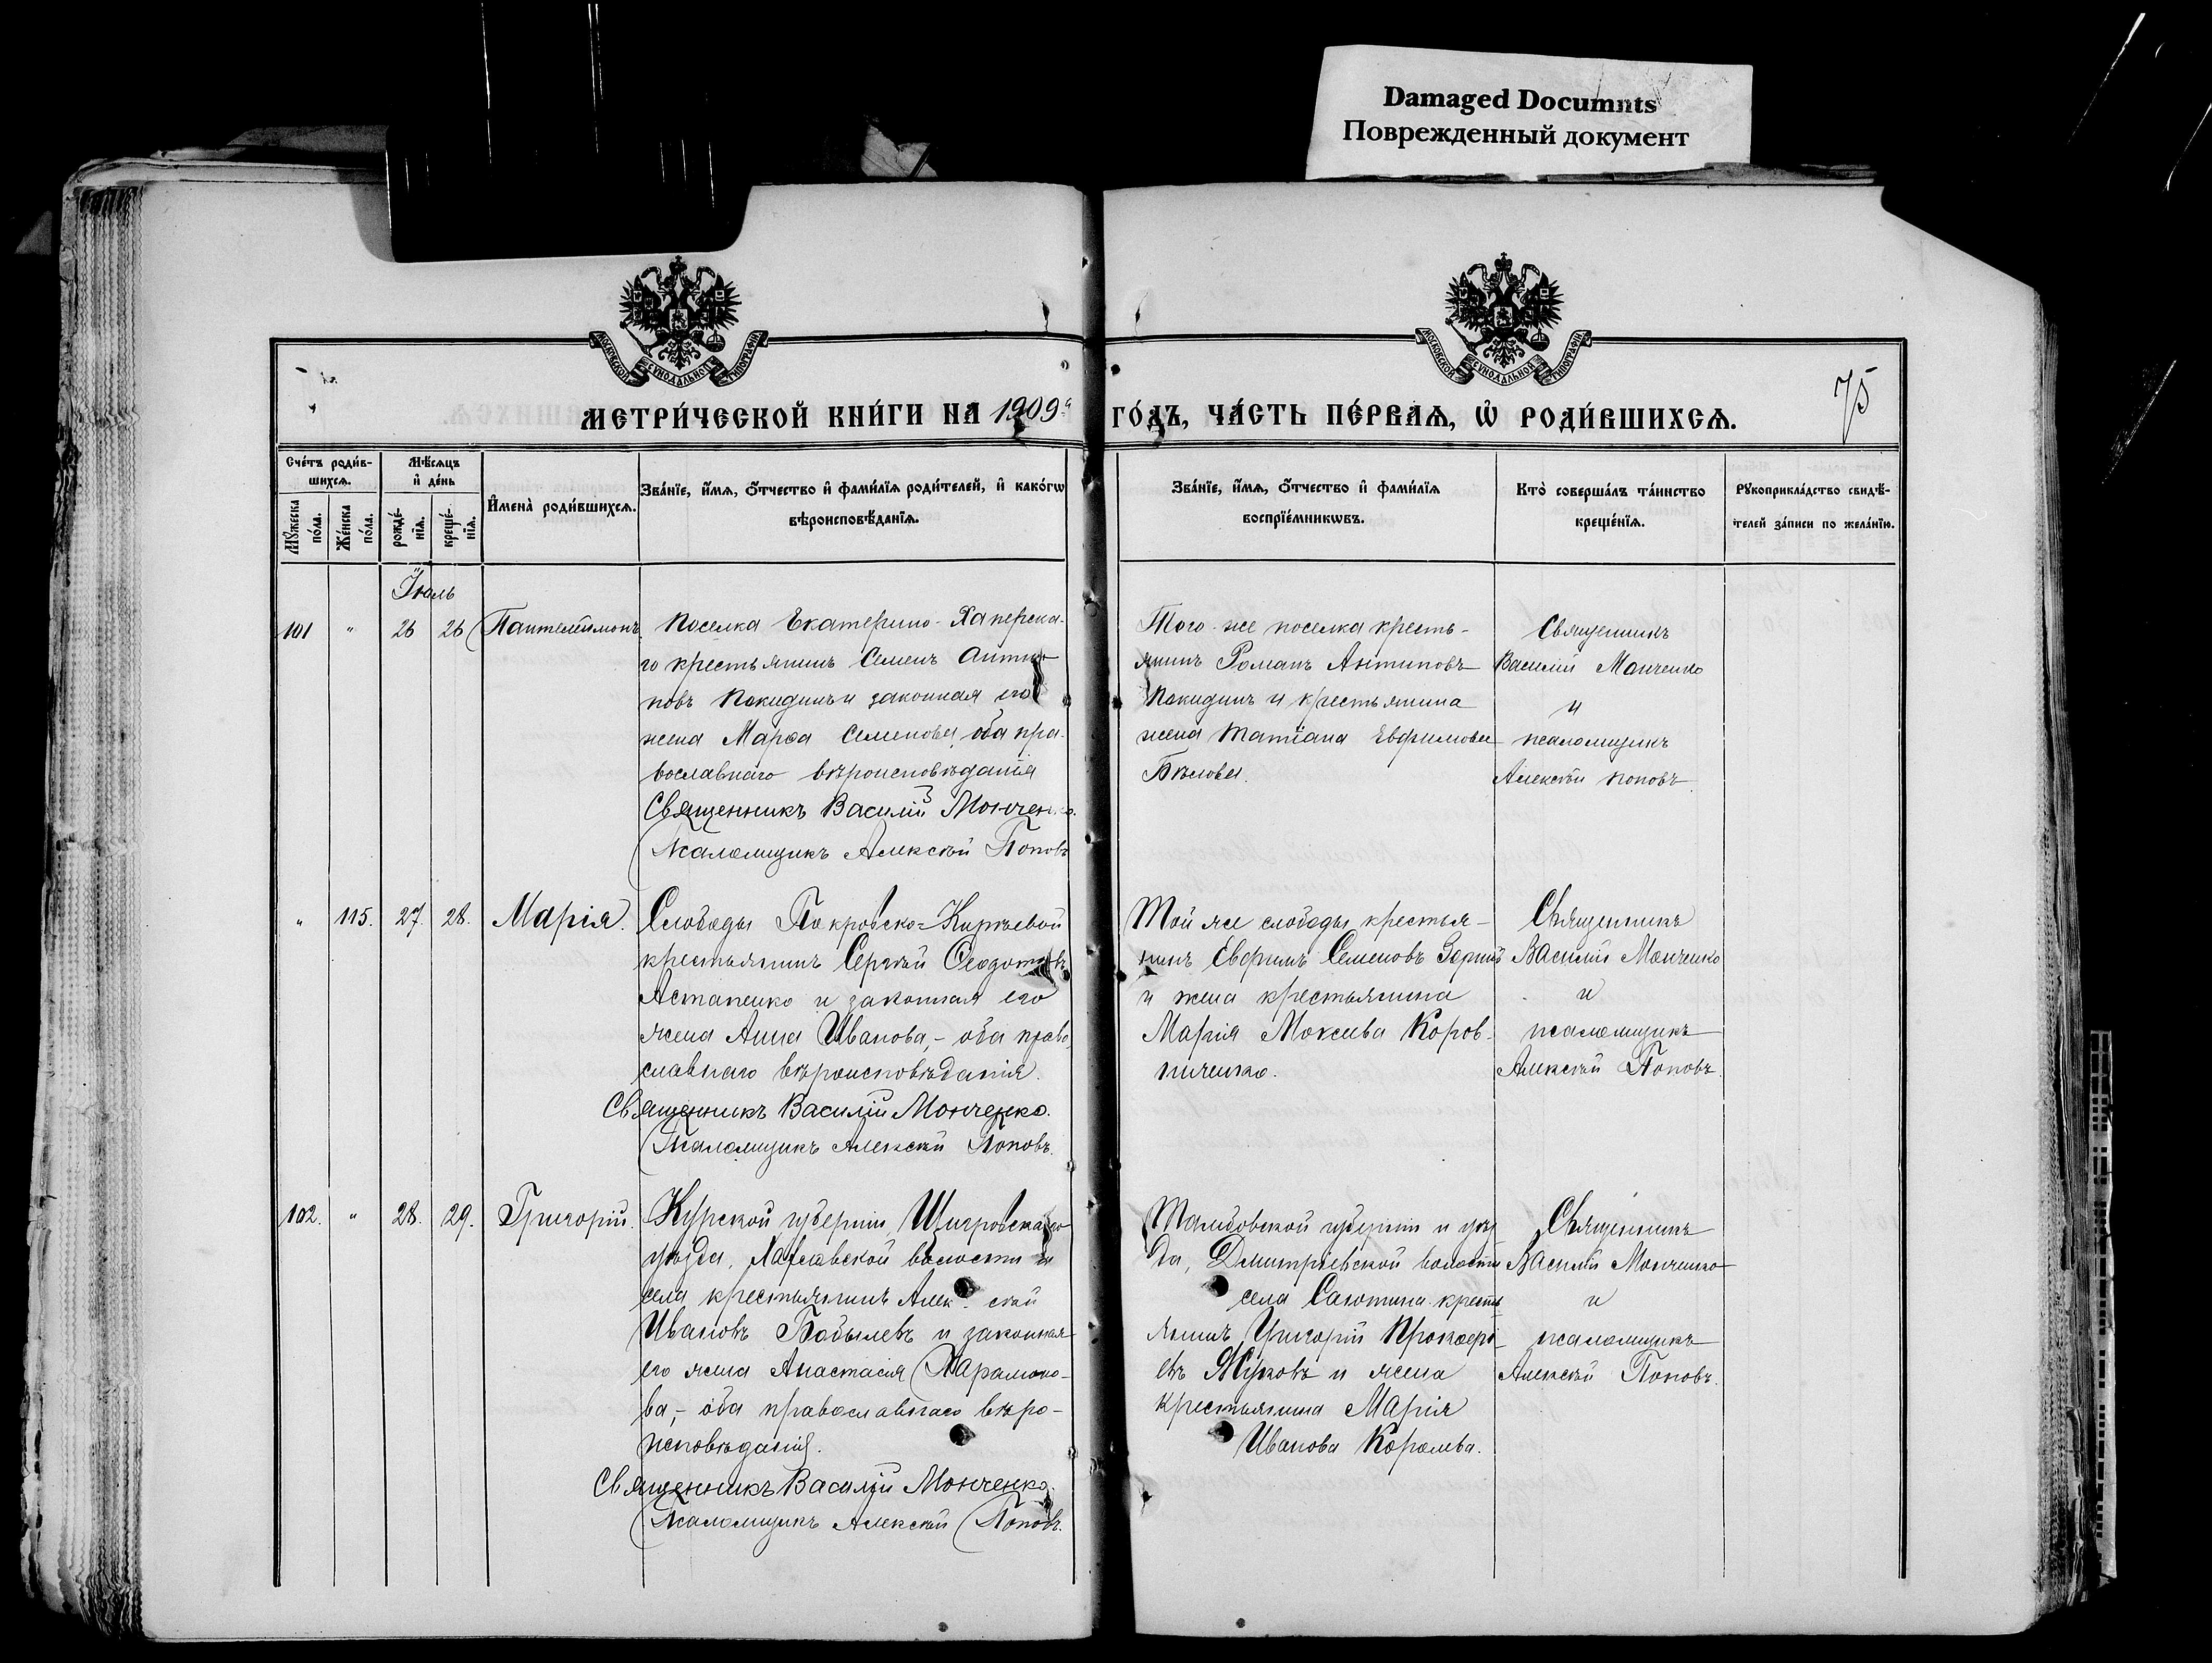 Damaged Documnts
Поврежденный документ
МОСКОВСКОЙ СѴНОДАЛЬНОЙ ТИПОГРАФІИ
МОСКОВСКОЙ СѴНОДАЛЬНОЙ ТИПОГРАФІИ
75
МЕТРИ́ЧЕСКОЙ КНИ́ГИ НА 1909 й
ГО́ДЪ, ЧА́СТЬ ПЕ́РВАѦ, Ѡ҆ РОДИ́ВШИХСѦ.
Сче́тъ роди́в-
шихсѧ.
Мꙋ́жеска по́ла.
Же́нска по́ла.
Мѣ́сѧцъ
и҆ де́нь
рожде́-
нїѧ.
креще́-
нїѧ.
И҆мена̀ роди́вшихсѧ.
Зва́нїе, и҆́мѧ, ѻ҆́тчество и҆ фами́лїѧ роди́телей, и҆ како́гѡ
вѣроисповѣ́данїѧ.
Зва́нїе, и҆́мѧ, ѻ҆́тчество и҆ фами́лїѧ
воспрїе́мникѡвъ.
Кто̀ соверша́лъ та́инство
креще́нїѧ.
Рꙋкоприкла́дство свидѣ́-
телей за́писи по жела́нїю.
Іюль
101 " 26 26 Пантелеймонъ
Поселка Екатерино-Хаперска-
го крестьянинъ Семенъ Анти-
повъ Покидинъ и законная его
жена Марѳа Семенова, оба пра-
вославнаго вѣроисповѣданія
Священникъ Василій Мончен
Псаломщикъ Алексѣй Поповъ
Того-же поселка кресть-
янинъ Романъ Антиповъ
Покидинъ и крестьянина
жена Татіана Евфимова
Бѣлова.
Священникъ
Василій Монченко
и
псаломщикъ
Алексѣй Поповъ.
" 115. 27. 28. Марія.
Слободы Покровско-Киреевой
крестьянинъ Сергѣй Ѳеодотовъ
Астапенко и законная его
жена Анна Иванова,- оба право-
славнаго вѣроисповѣданія.
Священникъ Василій Монченко.
Псаломщикъ Алексѣй Поповъ.
Той же слободы крестья-
нинъ Евфимъ Семеновъ
и жена крестьянина
Марія Моксиева Коров-
ниченко.
Священникъ
Василій Монченко
и
псаломщикъ
Алексѣй Поповъ.
102. " 28. 29. Григорій.
Курской губерніи Щигровскаго
уѣзда, волости и
села крестьянинъ Алексѣй
Ивановъ Бобылевъ и законная
его жена Анастасія Парамоно-
ва,- оба православнаго вѣро-
исповѣданія.
Священникъ Василій Монченко.
Псаломщикъ Алексѣй Поповъ.
Тамбовской губерніи и уѣз-
да, Дмитріевской волости
села Салтина кресть-
янинъ Григорій Прокофі-
евъ Жуковъ и жена
крестьянина Марія
Иванова Королева.
Священникъ
Василій Монченко
и
псаломщикъ
Алексѣй Поповъ.